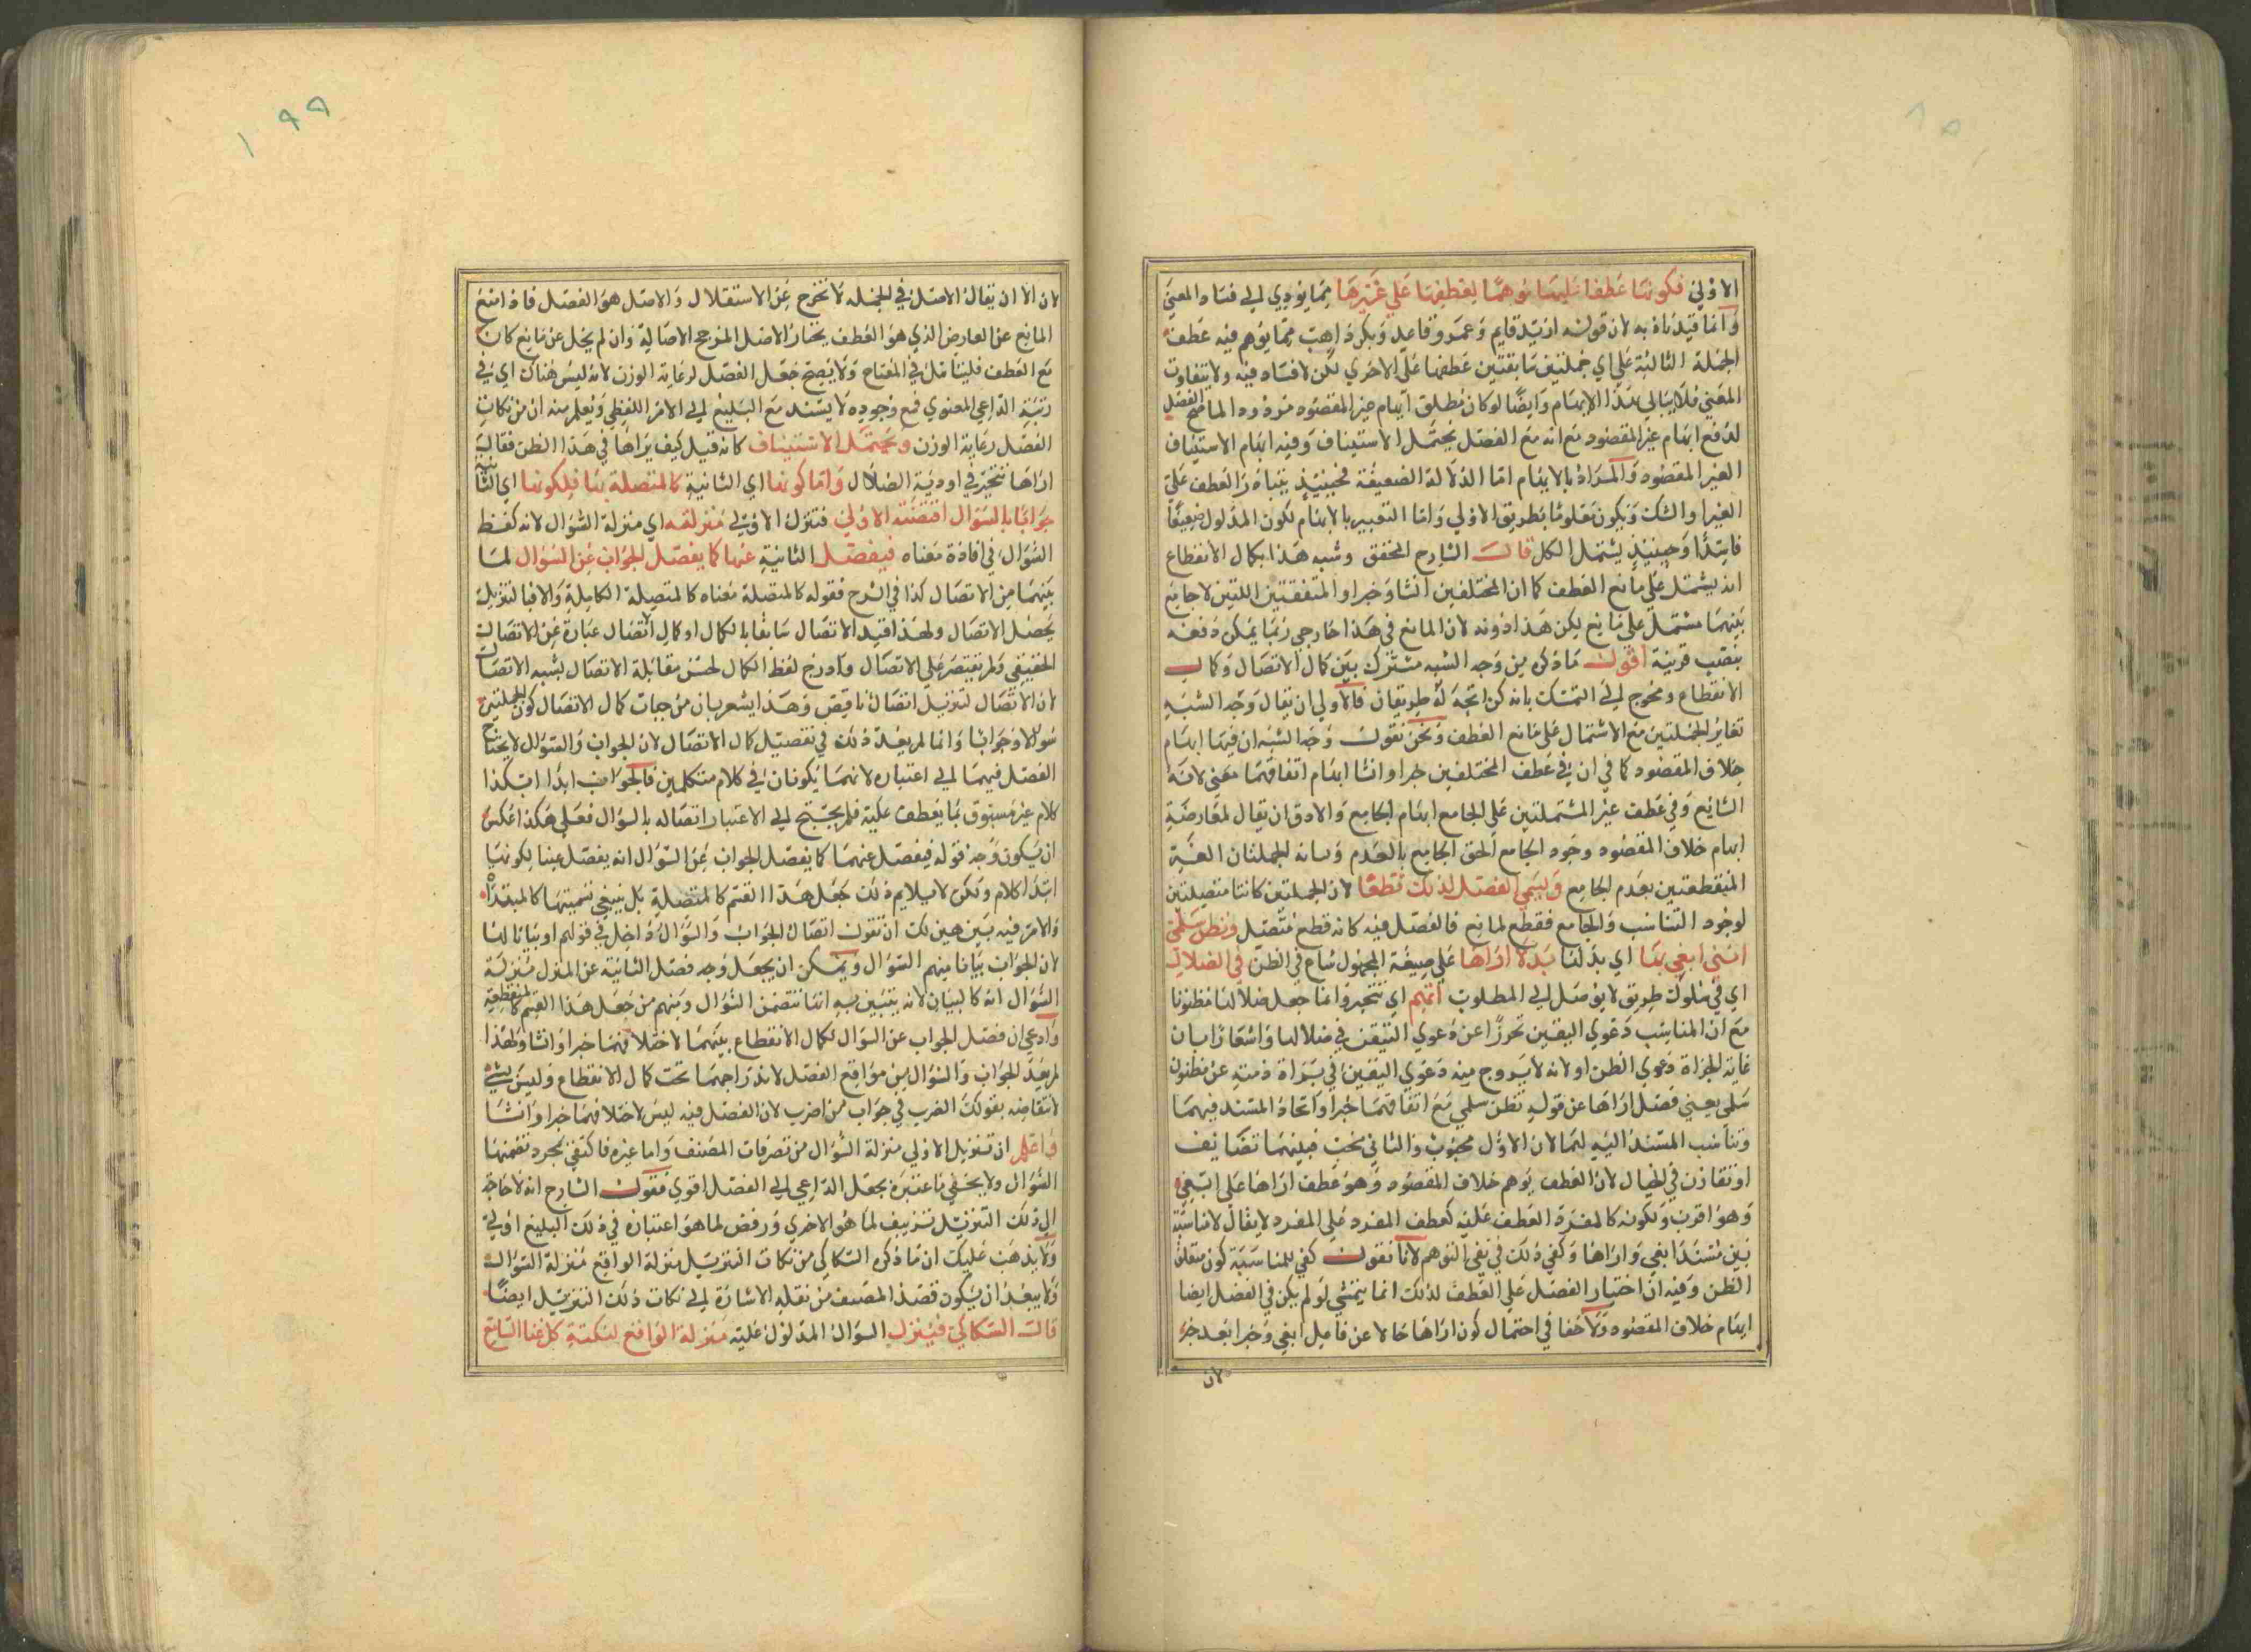 الاولى فكونها عطفا عليها موهما لعطفها على غيرها مما يؤدي الى فساد المعنى
وانما قيدناه به لان قولنه ازيد قايم وعمرو قاعد وبكر ذاهب مما يوهم فيه عطف
الجملة الثالثة على اي جملتين سابقتين عطفها على الاخرى لكن لا فساد فيه ولا يتفاوت
المعنى فلا يبالي بهذا الايهام وايضا لوكان مطلق ايهام غير المقصود مردود المامنع الفصل
لدفع ايهام غير المقصود مع انه مع الفصل يحتمل الاستيناف وفيه ايهام الاستيناف
الغير المقصود والمراد بالايهام اما الدلالة الضعيفة فحينيذ يتبادر العطف على
الغير او الشك ويكون معلوما بطريق الاولى واما التعبير بالايهام لكون المدلول ضعيفا
فاسدا وحينيذ يشتمل الكل قال الشارح المحقق وشبه هذا بكمال الانقطاع
انه يشتمل على مانع العطف كما ان المختلفين انشا وخبرا والمتفقتين اللتين لا جامع
بينهما مشتمل على مانع لكن هذا دونه لان المانع في هذا خارجي ربما يمكن دفعه
بنصب قرينة اقول ما ذكره من وجه الشبه مشترك بين كمال الاتصال وكمال
الانقطاع ومحوج الى التمسك بانه كن اتجه له طريقان فالاولى ان يقال وجه الشبه
تغاير الجملتين مع الاشتمال على مانع العطف ونحن نقول وجه الشبه ان فيهما ايهام
خلاف المقصود كما في ان في عطف المختلفين خبرا وانشا ايهام اتفاقهما معنى لانه
الشايع وفي عطف غير المشتملتين على الجامع ايهام الجامع والادق ان يقال لمعارضة
ايهام خلاف المقصود وجود الجامع الحق الجامع بالعدم وسانه الجملتان الغير
المنقطعتين بعدم الجامع ويسمى الفصل لذلك قطعا لان الجملتين كانتا متصلتين
لوجود التناسب والجامع فقطع لمانع فالفصل فيه كانه قطع متصل وتظن سلمى
انني ابغي بها اي بدلها بدلا اراها على صيغة المجهول شاع في الظن في الضلال
اي في سلوك طريق لا يوصل الى المطلوب اتهم اي تتحير وانما جعل ضلالها مظنونا
مع ان المناسب دعوى اليقين تحرزا عن دعوى التيقن في ضلالها واشعارا بان
غاية الجراة دعوى الظن اولا نه لا يروج منه دعوى اليقين في براة ذمته عن مظنون
سلمى يعني فصل اراها عن قوله تظن سلمى مع اتفاقهما خبرا واتحاد المسند فيهما
وتناسب المسند اليه لهما لان الاول محبوب والثاني محب فبينهما تضايف
او تقارن في الخيال لان العطف يوهم خلاف المقصود وهو عطف اراها على ابغي
وهو اقرب ولكونه كالمفرد العطف عليه كعطف المفرد على المفرد لا يقال لا مناسبة
بين مسند ابغي واراها وكفى ذلك في نفي التوهم لانا نقول كفى للمناسبة كون متعلق
الظن وفيه ان اختيار الفصل على العطف لذلك انما يتمشى لو لم يكن في الفصل ايضا
ايهام خلاف المقصود ولا خفا في احتمال كون اراها حالا عن فاعل ابغي وخبرا بعد خبر
لان
١٩٩
لان الا ان يقال الاصل في الجمله لا تخرج عن الاستقلال والاصل هو الفصل فاذا منع
المانع عن العارض الذي هو العطف يختار الاصل المرجح الاصالة وان لم يخل عن مانع كان
مع العطف فليتامل في المفتاح ولا يصح جعل الفصل لرعاية الوزن لانه ليس هناك اي في
رتبة الداعي المعنوي فمع وجوده لا يسند مع البليغ الى الامر اللفظي ويعلم منه ان من نكات
الفصل رعاية الوزن ويحتمل الاستيناف كانه قيل كيف يراها في هذا الظن فقال
اراها تتحير في اودية الضلال واما كونها اي الثانية كالمتصلة بها فلكونها اي الثانية
جوابا بالسؤال اقتضته الاولى فتنزل الاولى منزلته اي منزلة السؤال لانه كفظ
السؤال في افادة معناه فيفصل الثانية عنها كما يفصل الجواب عن السؤال لما
بينهما من الاتصال كذا في الشرح فقوله كالمتصلة معناه كالمتصلة الكاملة والا فبالتنزيل
يحصل الاتصال ولهذا قيد الاتصال سابقا بالكمال او كمال اتصال عبارة عن الاتصال
الحقيقي ولم يقتصر على الاتصال وادرج لفظ الكمال لحسن مقابلة الاتصال بشبه الاتصال
لان الاتصال لتنزيل اتصال ناقص وهذا يشعر بان من جهات كمال الاتصال كون الجملتين
سؤالا وجوابا وانما لم يعد ذلك في تفصيل كمال الاتصال لان الجواب والسؤال لا يحتاج
الفصل فيهما الى اعتباره لانهما يكونان في كلام متكلمين فالجواب ابدا ابتكذا
كلام غير مسبوق بما يعطف عليه فلم يحتج الى الاعتبار اتصاله بالسؤال فعلى هكذا عكس
ان يكون وجه قوله فيفصل عنهما كما يفصل الجواب عن السؤال انه يفصل عنها لكونها
ابتدا كلام ولكن لا يلايم ذلك جعل هذا القسم كالمتصلة بل ينبغي تسميتها كالمبتداة
والامر فيه بين هين لك ان تقول اتصال الجواب والسؤال داخل في قولهم او بيانا لها
لان الجواب بيانا مبهم السؤال ويمكن ان يجعل وجه فصل الثانية عن المنزل منزلة
السؤال انه كالبيان لانه يتبين به انها تتضمن السؤال ومنهم من جعل هذا القسم كالمنقطعة
وادعى ان فصل الجواب عن السؤال لكمال الانقطاع بينهما لاختلافهما خبرا وانشا ولهذا
لم يعد الجواب والسؤال من مواقع الفصل لاندراجهما تحت كمال الانقطاع وليس بشي
لانتقاضه بقولك الضرب في جواب من اضرب لان الفصل فيه ليس لاختلافهما خبرا وانشا
واعلم ان تنزيل الاولى منزلة السؤال من تصرفات المصنف واما غيره فاكتفى بمجرد تضمنها
السؤال ولا يخفى ما اعتبره بجعل الداعي الى الفصل اقوى فقول الشارح انه لا حاجة
الى ذلك التنزيل تزييف لما هو الاخرى ورفض لما هو اعتباره في ذلك البليغ اولى
ولا يذهب عليك ان ما ذكره السكاكي من نكات التنزيل منزلة الواقع منزلة السؤال
ولا يبعد ان يكون قصد المصنف من نقله الاشارة الى نكات ذلك التنزيل ايضا
قال السكاكي فينزل السؤال المدلول عليه منزلة الواقع لنكتة كاغنا السامع